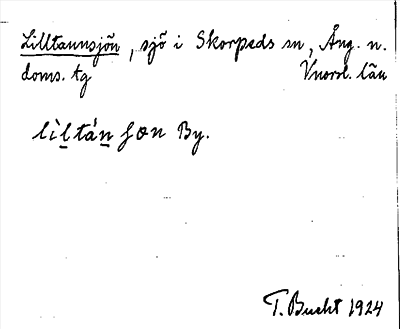 Lilltannsjön, sjö i Skorpeds sn, Ång. n.
doms. tg Vnorrl. län
lìl̲tán̲ ʃon By.
T. Bucht 1924